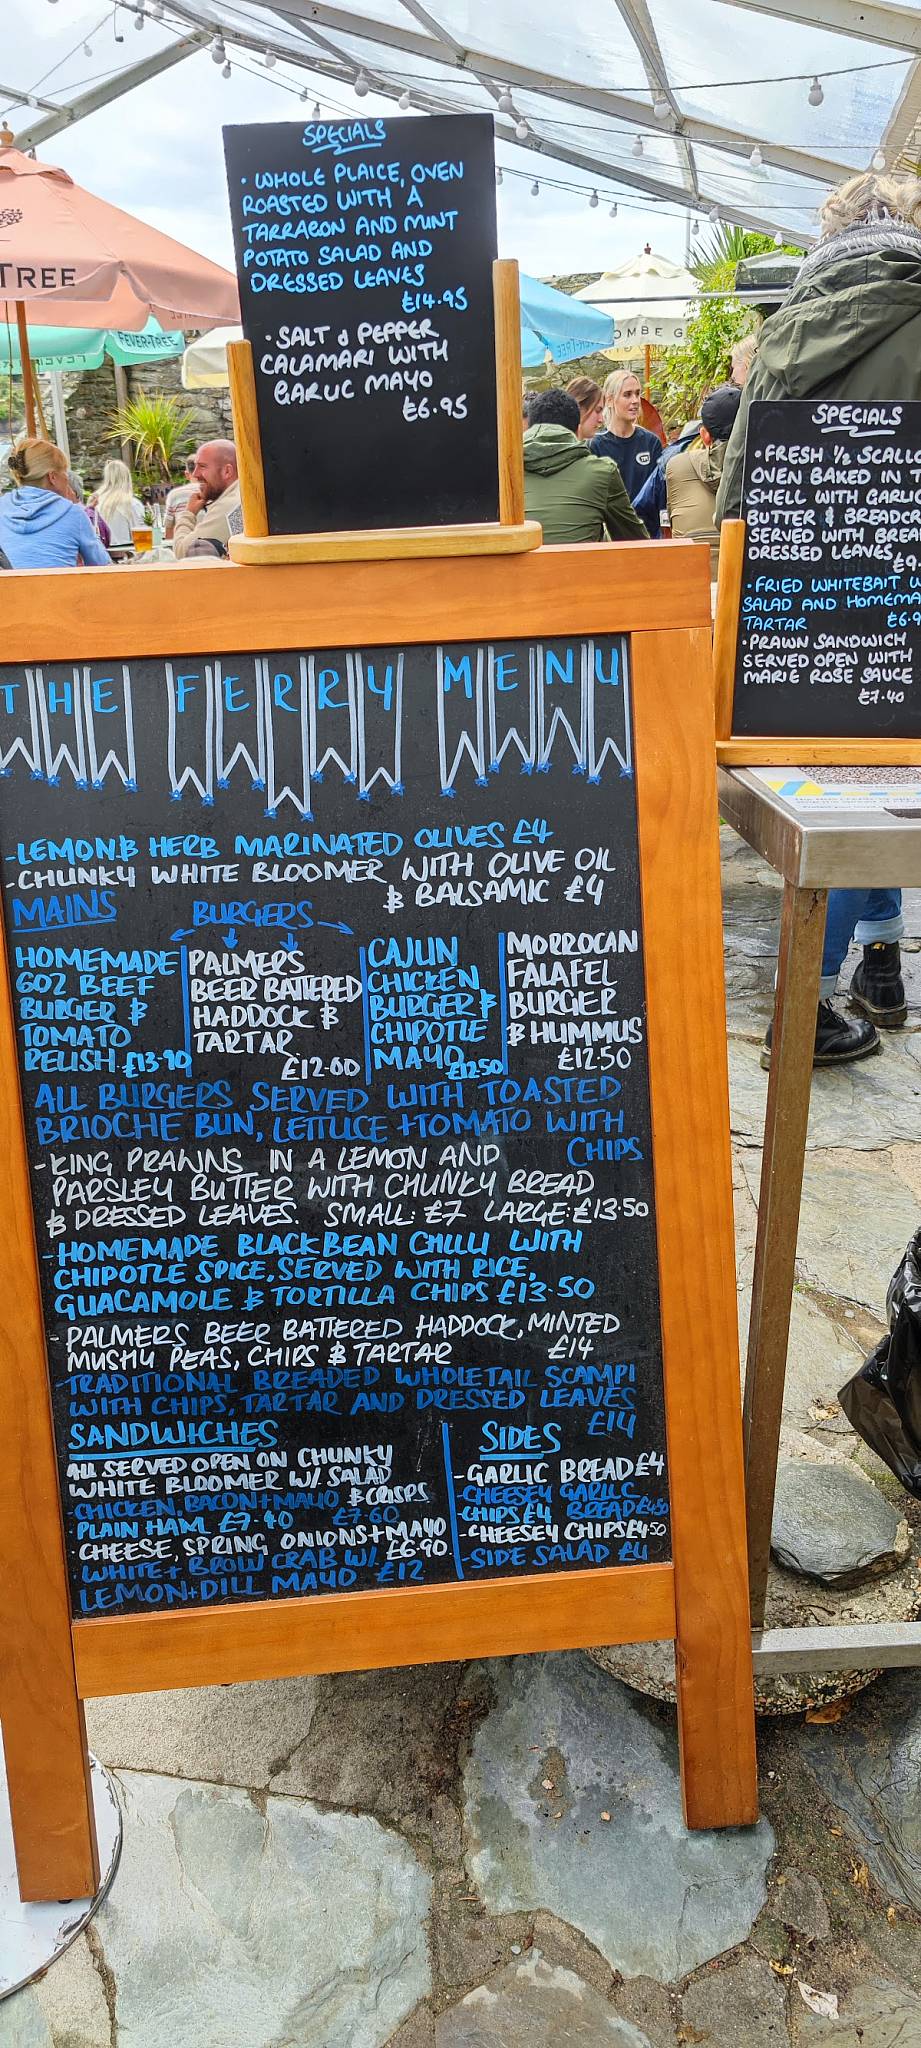 SPECIALS
• WHOLE PLAICE, OVEN
ROASTED WITH A
TARRAGON AND MINT
POTATO SALAD AND
DRESSED LEAVES
£14.95
• SALT & PEPPER
CALAMARI WITH
GARLIC MAYO
£6.95
TREE
FEVER-TREE
FEVER-TREE
OMBE G
SPECIALS
• FRESH ½ SCALLO
OVEN BAKED IN
SHELL WITH GARLIC
BUTTER & BREADCR
SERVED WITH BREA
DRESSED LEAVES
£9.
• FRIED WHITEBAIT W
SALAD AND HOMEMA
TARTAR £6.9
• PRAWN SANDWICH
SERVED OPEN WITH
MARIE ROSE SAUCE
£7.40
THE FERRY MENU
- LEMON & HERB MARINATED OLIVES £4
- CHUNKY WHITE BLOOMER WITH OLIVE OIL
& BALSAMIC £4
MAINS
BURGERS
HOMEMADE
6OZ BEEF
BURGER &
TOMATO
RELISH £13.90
PALMERS
BEER BATTERED
HADDOCK &
TARTAR
£12.00
CAJUN
CHICKEN
BURGER &
CHIPOTLE
MAYO £12.50
MORROCAN
FALAFEL
BURGER
& HUMMUS
£12.50
ALL BURGERS SERVED WITH TOASTED
BRIOCHE BUN, LETTUCE + TOMATO WITH
CHIPS
- KING PRAWNS IN A LEMON AND
PARSLEY BUTTER WITH CHUNKY BREAD
& DRESSED LEAVES. SMALL: £7 LARGE: £13.50
- HOMEMADE BLACKBEAN CHILLI WITH
CHIPOTLE SPICE, SERVED WITH RICE,
GUACAMOLE & TORTILLA CHIPS £13.50
- PALMERS BEER BATTERED HADDOCK, MINTED
MUSHY PEAS, CHIPS & TARTAR £14
- TRADITIONAL BREADED WHOLETAIL SCAMPI
WITH CHIPS, TARTAR AND DRESSED LEAVES
£14
SANDWICHES
ALL SERVED OPEN ON CHUNKY
WHITE BLOOMER W/ SALAD
& CRISPS
- CHICKEN, BACON + MAYO £7.60
- PLAIN HAM £7.40
- CHEESE, SPRING ONIONS + MAYO
£6.90
- WHITE + BROW CRAB W/
LEMON + DILL MAYO £12
SIDES
- GARLIC BREAD £4
- CHEESEY GARLIC
BREAD £4.50
- CHIPS £4
- CHEESEY CHIPS £4.50
- SIDE SALAD £4